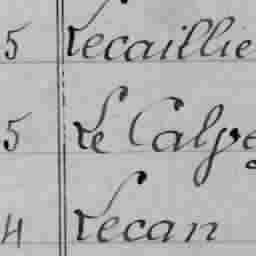 5 Lecaillie
5 Le Calpe
4 Lecan